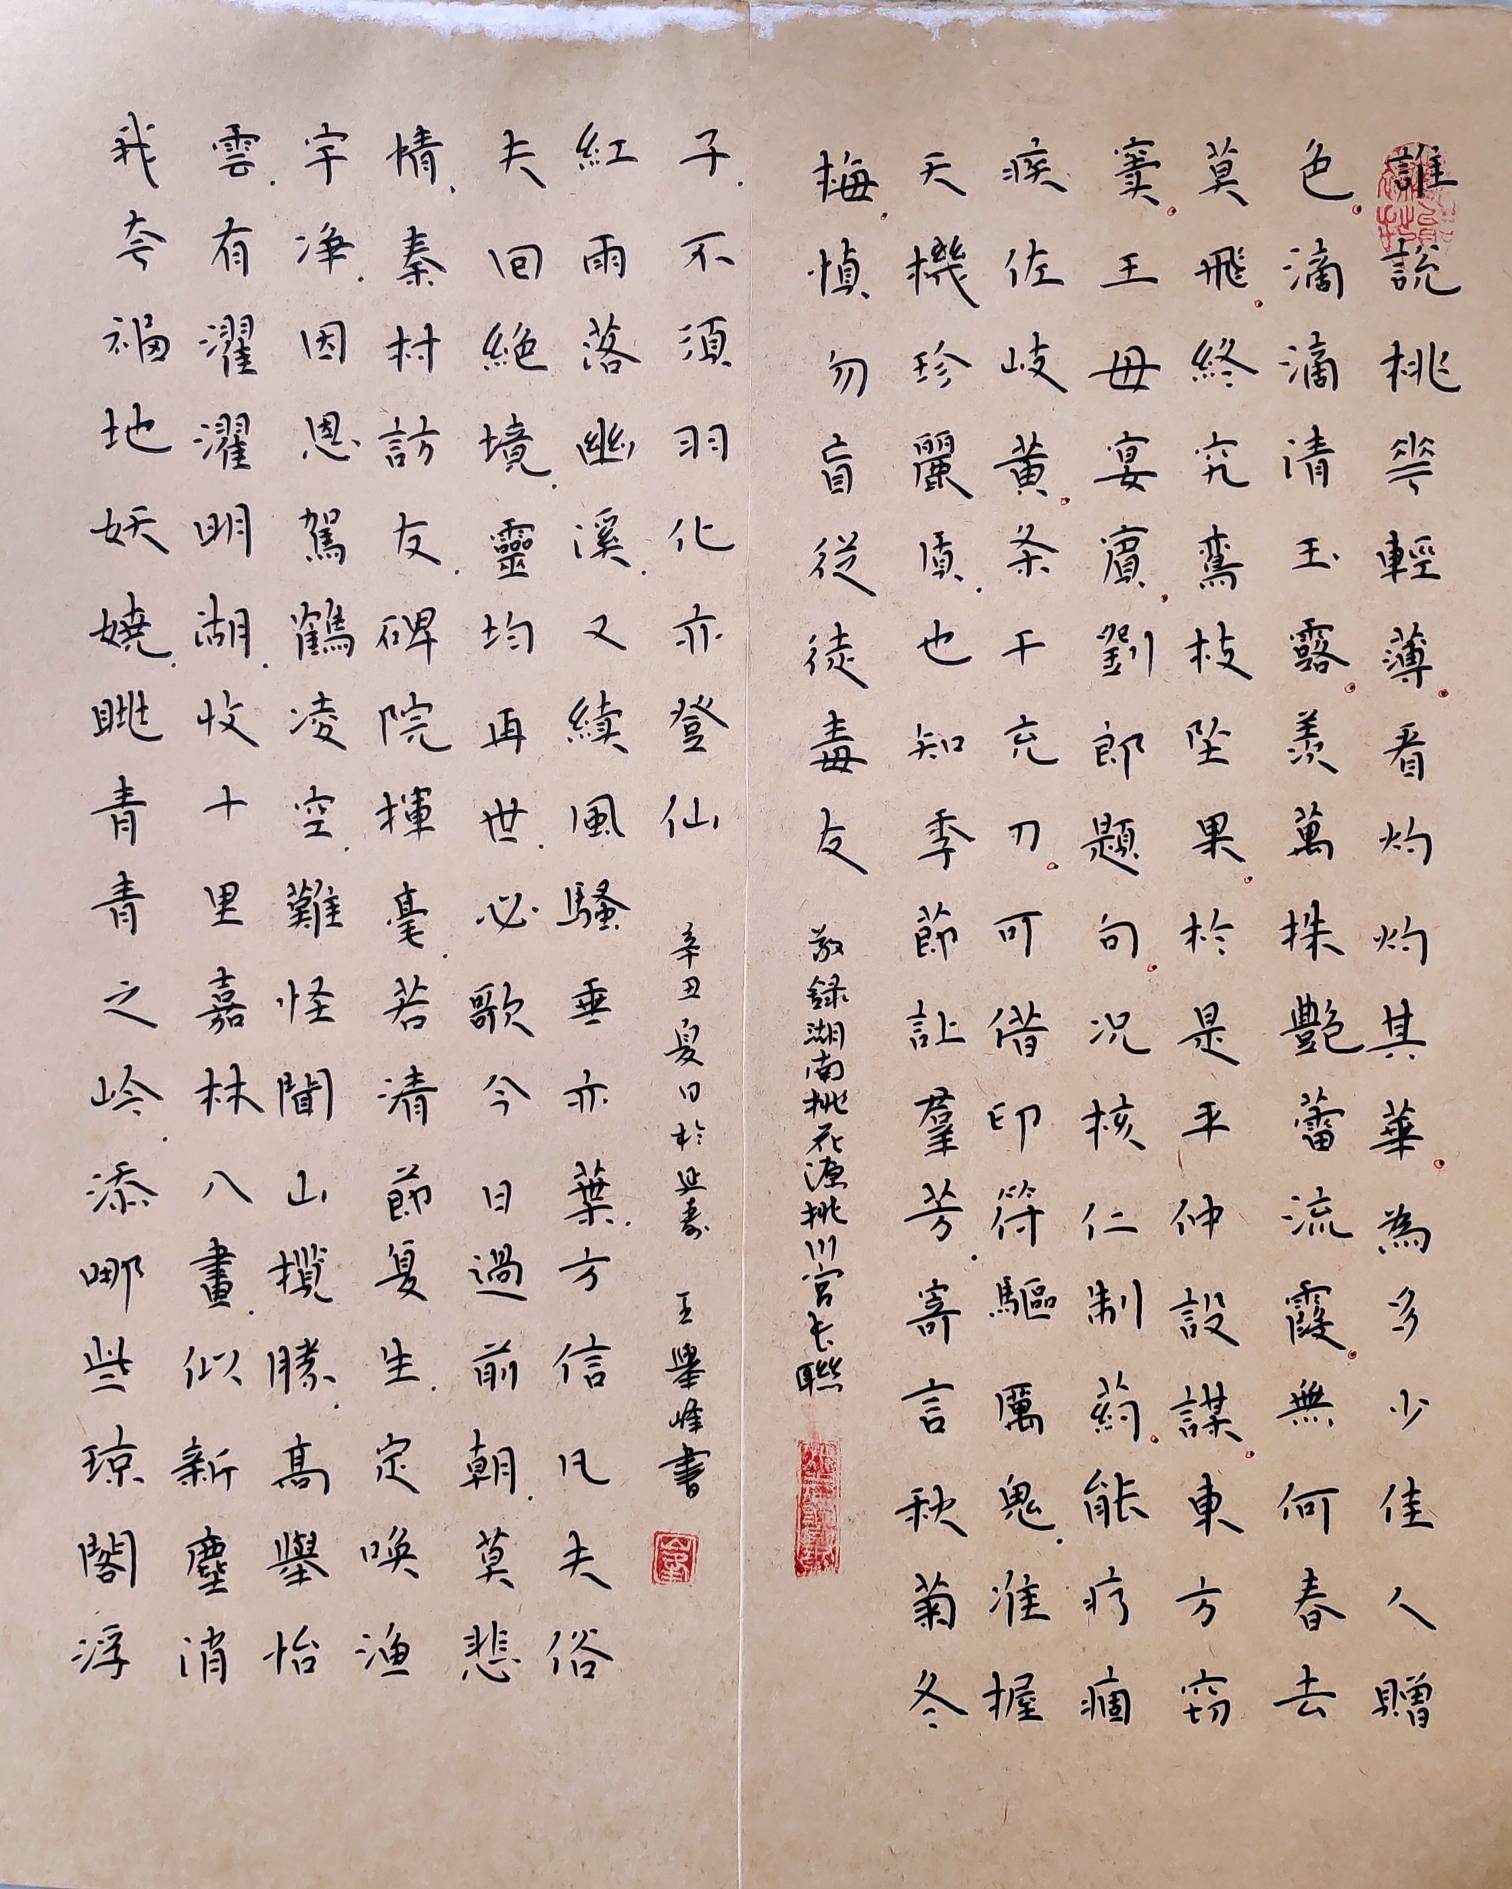 誰說桃華輕薄。看灼灼其華。為多少佳人贈
色。滴滴清玉露。羨萬株艷蕾流霞。無何春去
莫飛。終究鸞枝坠果。於是平仲設謀。東方窃
實。王母宴賓。劉郎題句。况核仁制药。能疗痼
疾。佐岐黄。条干充刀。可借印符驅厲鬼.准握
天機珍麗質.也知季節让羣芳.寄言秋菊冬
梅.慎勿盲從徒毒友
敬録湖南桃花源桃川宫长聯
我夸福地妖嬈.眺青青之岭.添哪些琼閣浮
雲.有濯濯明湖.收十里嘉林八畫.似新塵消
宇净.因恩駕鶴凌空.難怪閬山攬勝.高舉怡
情.秦村訪友.碑院揮毫.若清節复生.定唤渔
夫回絶境.靈均再世.必歌今日過前朝.莫悲
紅雨落幽溪.又續風騷垂亦葉.方信凡夫俗
子.不須羽化亦登仙
辛丑夏日於延寿 王舉峰書